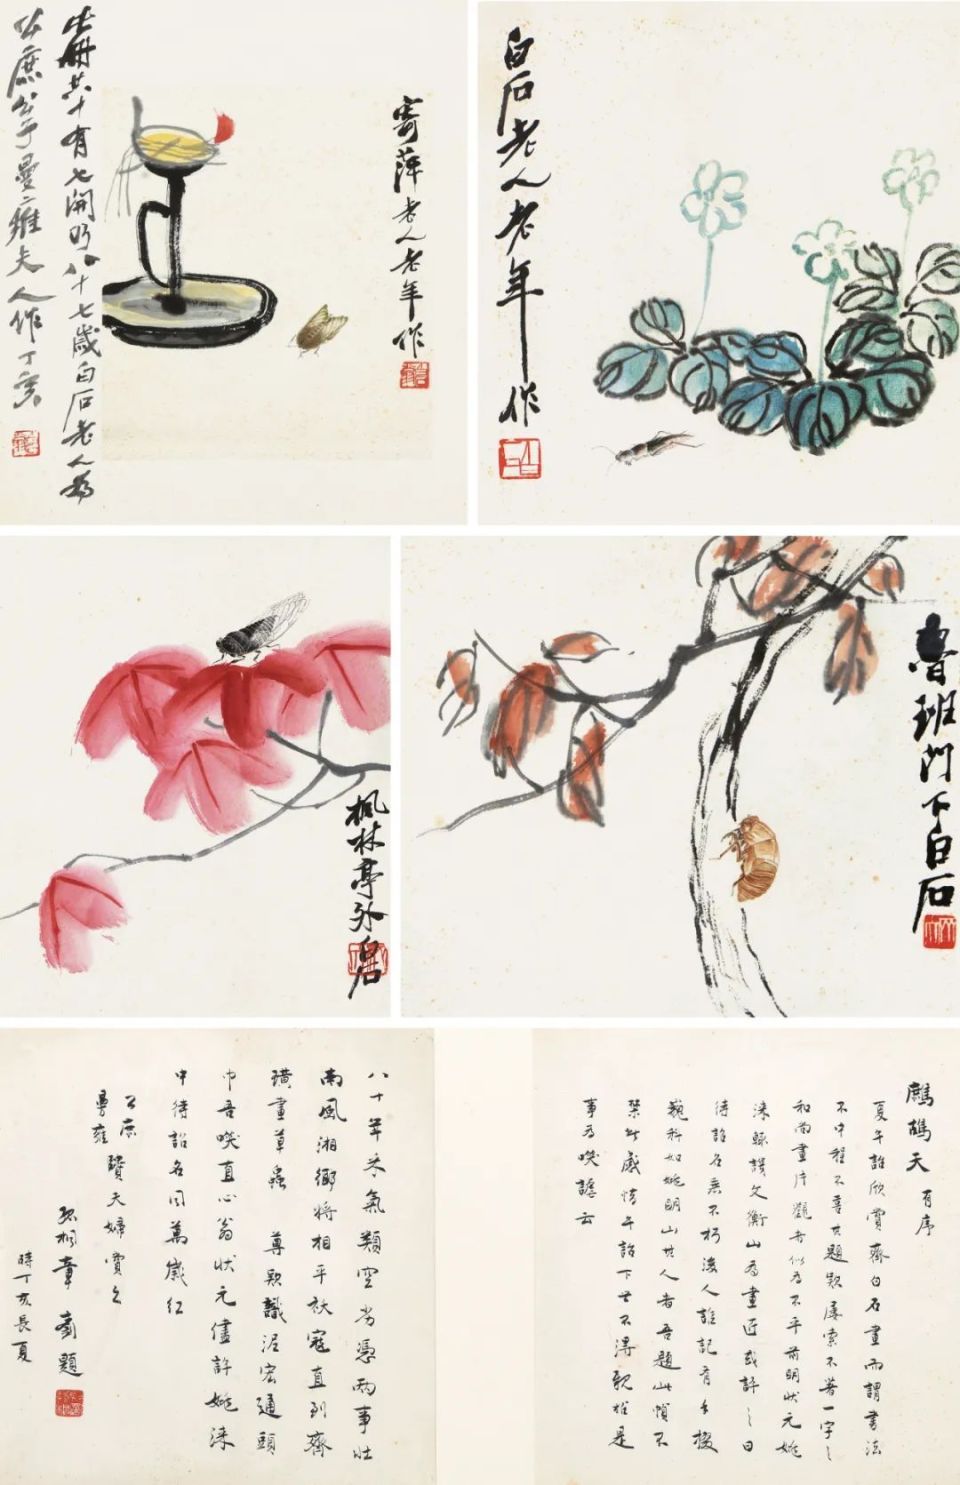 寄萍老人老年作
此册共十有七開乃八十七歲白石老人為
公庶公子曼雍夫人作丁亥
白石老人老年作
楓林亭外白石
魯班門下白石
鷓鴣天 有序
夏午詒欣賞齊白石畫而謂書法
不中程不喜其題款屢索不著一字之
和南畫片觀者似為不平前明狀元姚
淶輕謨文衡山為畫匠或許之曰
待詔名表不朽後人誰記有手掇
巍科如姚明山其人者吾題此幀不
禁此感惜午詒下世不得歌推是
事為噗謔云
八十年木氣類空為憑兩事壯
南風湘鄉將相平袄寇直到齊
璜畫草蟲 尊款識泥宏通頭
巾吾噗直心翁狀元儘許姚淶
中待詔名同萬歲紅
公庶
曼雍 賢夫婦實之
孤桐章 題
時丁亥長夏